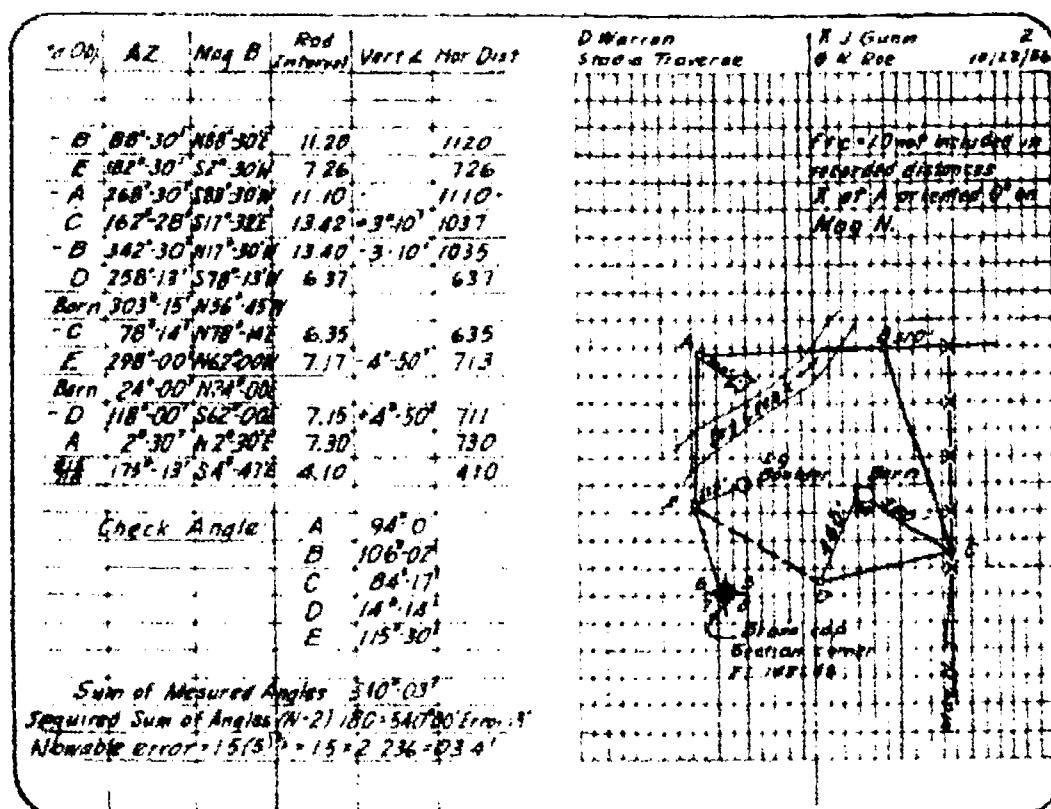 Obj. AZ Mag B Rod Interval Vert ∠ Hor Dist
- B 88°-30' N88°-30'E 11.20 1120
E 182°-30' S2°-30'W 7.26 726
- A 268°-30' S88°-30'W 11.10 1110
C 162°-28' S17°-32'E 13.42 +3°-10' 1037
- B 342°-30' N17°-30'W 13.40 -3°-10' 1035
D 258°-13' S78°-13'W 6.37 637
Barn 303°-15' N56°-45'W
- C 78°-14' N78°-14'E 6.35 635
E 298°-00' N62°-00'W 7.17 -4°-50' 713
Barn 24°-00' N24°-00'E
- D 118°-00' S62°-00'E 7.15 +4°-50' 711
A 2°-30' N2°-30'E 7.30 730
175°-13' S4°-47'E 4.10 410
Check Angle A 94°0
B 106°-02'
C 84°-17'
D 14°-14'
E 115°-30'
Sum of Mesured Angles 540°-03'
Required Sum of Angles (N-2) 180 = 540°00' Error
Allowable error = 1.5(5) = 1.5 × 2.236 = 03.4'
D Warren
Stadia Traverse
J Gunn 2
Roe 10/22/56
F+C = 1.0 not included in
recorded distances
at A oriented 0° on
Mag N.
A
B
Boulder
Barn
C
Brass cap
Section corner